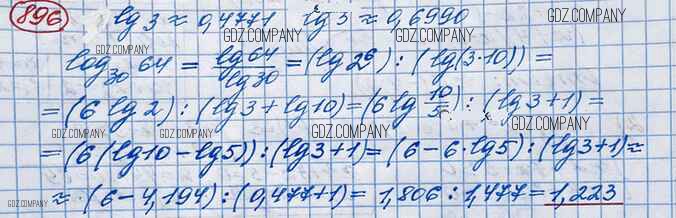 896 lg 3 ≈ 0,4771 lg 5 ≈ 0,6990
GDZ.COMPANY GDZ.COMPANY GDZ.COMPANY
log₃₀ 64 = lg 64 / lg 30 = (lg 2⁶) : (lg(3·10)) =
GDZ.COMPANY GDZ.COMPANY GDZ.COMPANY
= (6 lg 2) : (lg 3 + lg 10) = (6 lg 10/5) : (lg 3 + 1) =
GDZ.COMPANY GDZ.COMPANY GDZ.COMPANY
= (6 (lg 10 − lg 5)) : (lg 3 + 1) = (6 − 6·lg 5) : (lg 3 + 1) ≈
≈ (6 − 4,194) : (0,477 + 1) = 1,806 : 1,477 = 1,223
GDZ.COMPANY GDZ.COMPANY GDZ.COMPANY